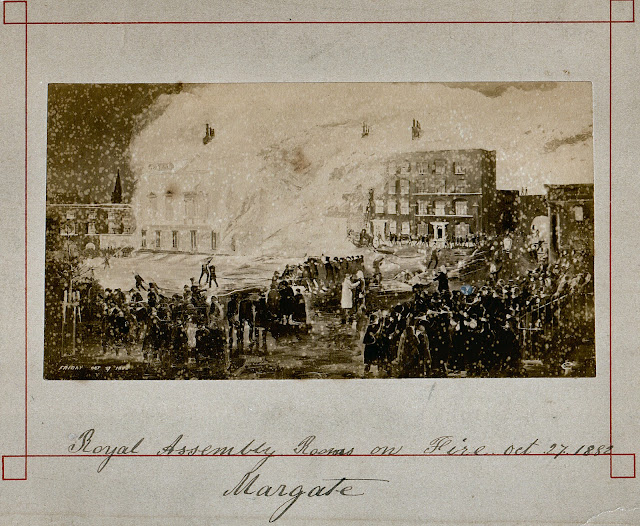 FRIDAY OCT
Royal Assembly Rooms on Fire. Oct. 27. 1882
Margate